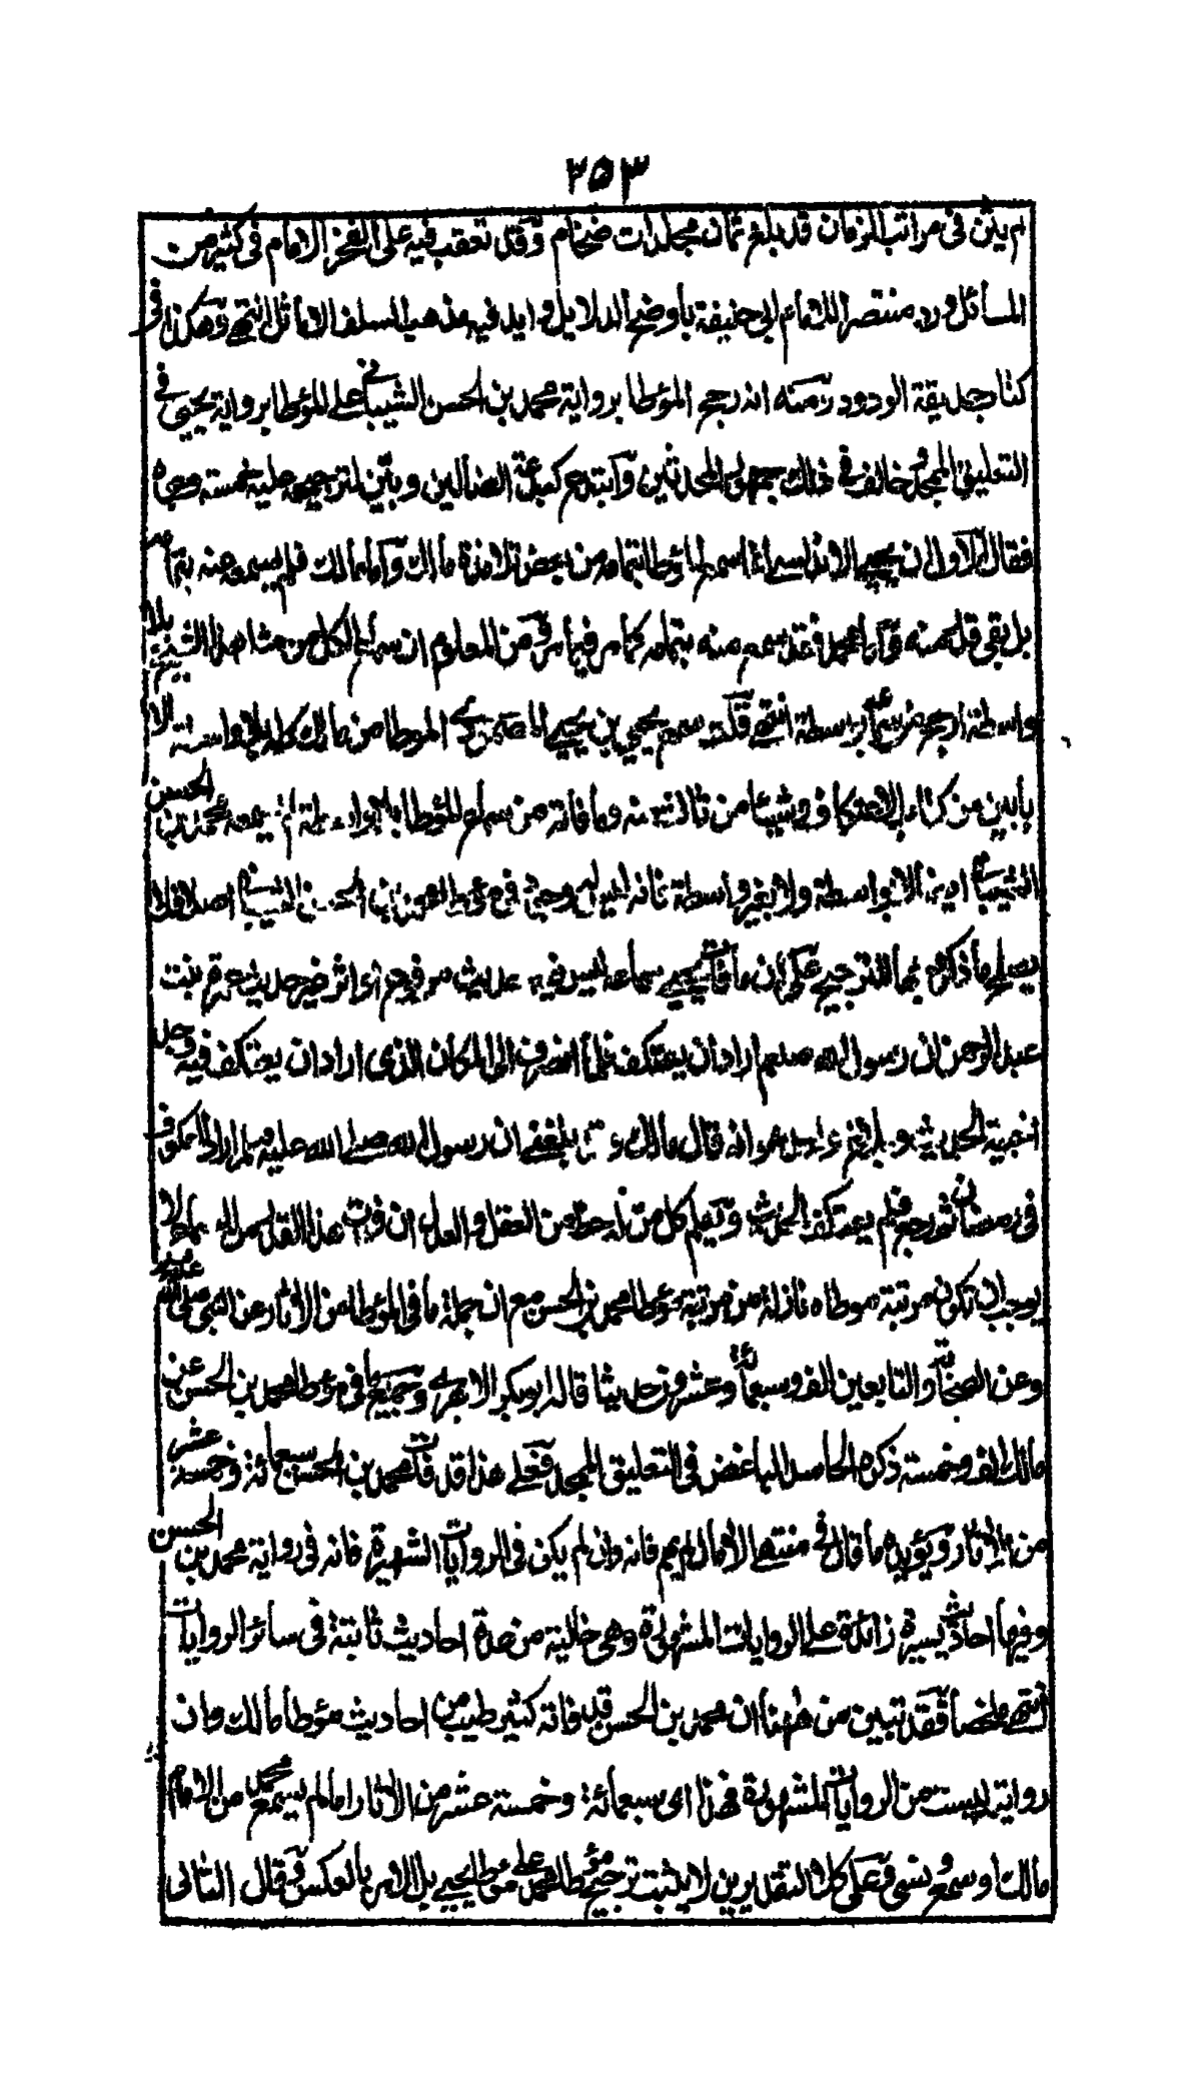 ٣٥٣
لم يثن في مراتب الزمان قد بلغ ثمان مجلدات ضخام وقد تعقب فيه على الفخر الامام في كثير من
المسائل ورد منتصرا للامام ابي حنيفة بأوضح الدلايل وايد فيه مذهب السلف الاماثل انتهى وهكذا في
كتاب حديقة الودود ومنه انه رجح المؤطا برواية محمد بن الحسن الشيباني على المؤطا برواية يحيى في
التعليق الممجد خالف في ذلك جمهور المحدثين وابتدع كبدعة الضالين وبين لترجيحه عليه خمسة وجوه
فقال الاول ان يحيى الاندلسي انما سمع المؤطا بتمامه من بعض تلامذة مالك واما مالك فلم يسمعه منه بتمامه
بل بقي قدر منه واما محمد فقد سمع منه بتمامه كما مر فيما مر ومن المعلوم ان سماع الكل من مثل هذا الشيخ بلا
واسطة ارجح من سماعه بواسطة انتهى قلت سمع يحيى بن يحيى المصمودي المؤطا من مالك كله بلا واسطة الا
بابين من كتاب الاعتكاف وشيئا من ثالث منه وما فاته من سماع المؤطا بلا واسطة لم يسمعه محمد بن الحسن
الشيباني ايضا لا بواسطة ولا بغير واسطة فانه ليس له وجود في مؤطا محمد بن الحسن الشيباني اصلا فلا
يصلح ما ذكره بها للترجيح على ان ما فات يحيى سماعه ليس فيه حديث مرفوع او اثر غير حديث عمرة بنت
عبد الرحمن ان رسول الله صلعم اراد ان يعتكف فلما انصرف الى المكان الذي اراد ان يعتكف فيه وجد
اخبية الحديث وبلاغ واحد هو انه قال مالك بلغني ان رسول الله صلى الله عليه وسلم اراد العكوف
في رمضان ثم رجع فلم يعتكف الحديث ويعلم كل من له حظ من العقل والعدل ان فوت هذا القدر من السماع لا
يوجب ان تكون مرتبة موطاه نازلة من مرتبة مؤطا محمد بن الحسن مع ان جملة ما في المؤطا من الاثار عن النبي صلى الله عليه وسلم
وعن الصحابة والتابعين الف وسبعمائة وعشرون حديثا قاله ابو بكر الابهري وجميع ما في مؤطا محمد بن الحسن عن
مالك الف وخمسة ذكره الحاسد الباغض في التعليق الممجد فعلى هذا قد فات محمد بن الحسن سبعمائة وخمسة عشر
من الاثار ويؤيده ما قال في منتهى الامال لمريم فانه وان لم يكن في الروايات الشهيرة فانه في رواية محمد بن الحسن
وفيها احاديث يسيرة زائدة على الروايات المشهورة وهي خالية من عدة احاديث ثابتة في سائر الروايات
انتهى ملخصا فقد تبين من ههنا ان محمد بن الحسن قد فاته كثير طيب من احاديث مؤطا مالك وان
روايته ليست من الروايات المشهورة فهذا اي سبعمائة وخمسة عشر من الاثار اما لم يسمع محمد من الامام
مالك او سمع ونسي وعلى كلا التقديرين لا يثبت ترجيح مؤطا محمد على مؤطا يحيى بل الامر بالعكس وقال الثاني